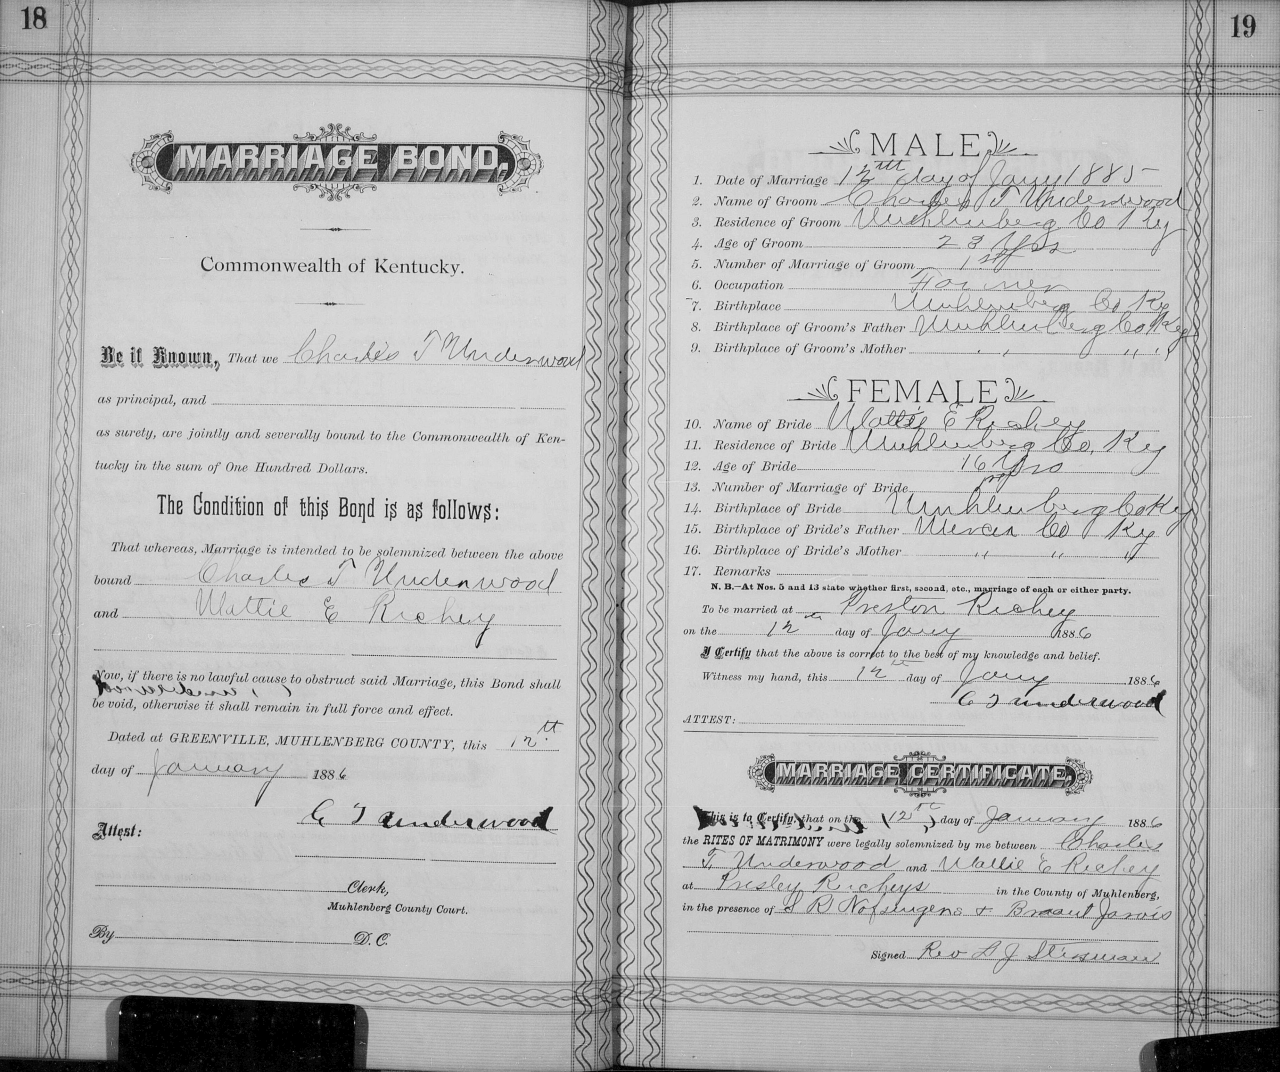 18
MARRIAGE BOND.
Commonwealth of Kentucky.
Be it Known, That we Charles T Underwood
as principal, and
as surety, are jointly and severally bound to the Commonwealth of Ken-
tucky in the sum of One Hundred Dollars.
The Condition of this Bond is as follows:
That whereas, Marriage is intended to be solemnized between the above
bound Charles T Underwood
and Mattie E Richey
Now, if there is no lawful cause to obstruct said Marriage, this Bond shall
be void, otherwise it shall remain in full force and effect.
Dated at GREENVILLE, MUHLENBERG COUNTY, this 12th
day of January 1886
C T Underwood
Attest:
Clerk,
Muhlenberg County Court.
By D. C.
19
MALE
1. Date of Marriage 12th day of Jany 1885
2. Name of Groom Charles T Underwood
3. Residence of Groom Muhlenberg Co Ky
4. Age of Groom 23 Yrs
5. Number of Marriage of Groom 1st
6. Occupation Farmer
7. Birthplace Muhlenberg Co Ky
8. Birthplace of Groom's Father Muhlenberg Co Ky
9. Birthplace of Groom's Mother " " "
FEMALE
10. Name of Bride Mattie E Richey
11. Residence of Bride Muhlenberg Co. Ky
12. Age of Bride 16 Yrs
13. Number of Marriage of Bride 1st
14. Birthplace of Bride Muhlenberg Co Ky
15. Birthplace of Bride's Father Mercer Co Ky
16. Birthplace of Bride's Mother " " "
17. Remarks
N. B.—At Nos. 5 and 13 state whether first, second, etc., marriage of each or either party.
To be married at Preston Richey
on the 12th day of Jany 1886
I Certify that the above is correct to the best of my knowledge and belief.
Witness my hand, this 12th day of Jany 1886
C T Underwood
ATTEST:
MARRIAGE CERTIFICATE.
This is to Certify, that on the 12th day of January 1886
the RITES OF MATRIMONY were legally solemnized by me between Charles
T. Underwood and Mattie E Richey
at Presley Richeys in the County of Muhlenberg,
in the presence of S R & Jarvis
Signed Rev